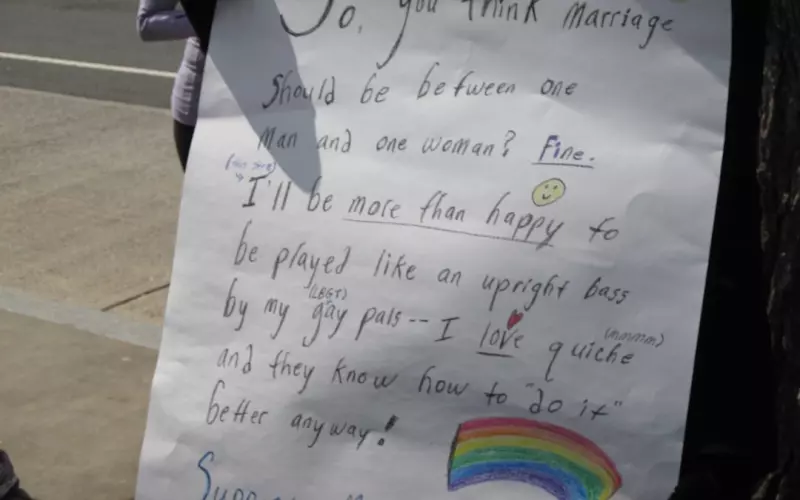 So, you think Marriage
Should be between one
Man and one woman? Fine.
I'll be more than happy to
be played like an upright bass
(LBGT)
by my gay pals -- I love quiche
(mmmm)
and they know how to "do it"
better anyway!